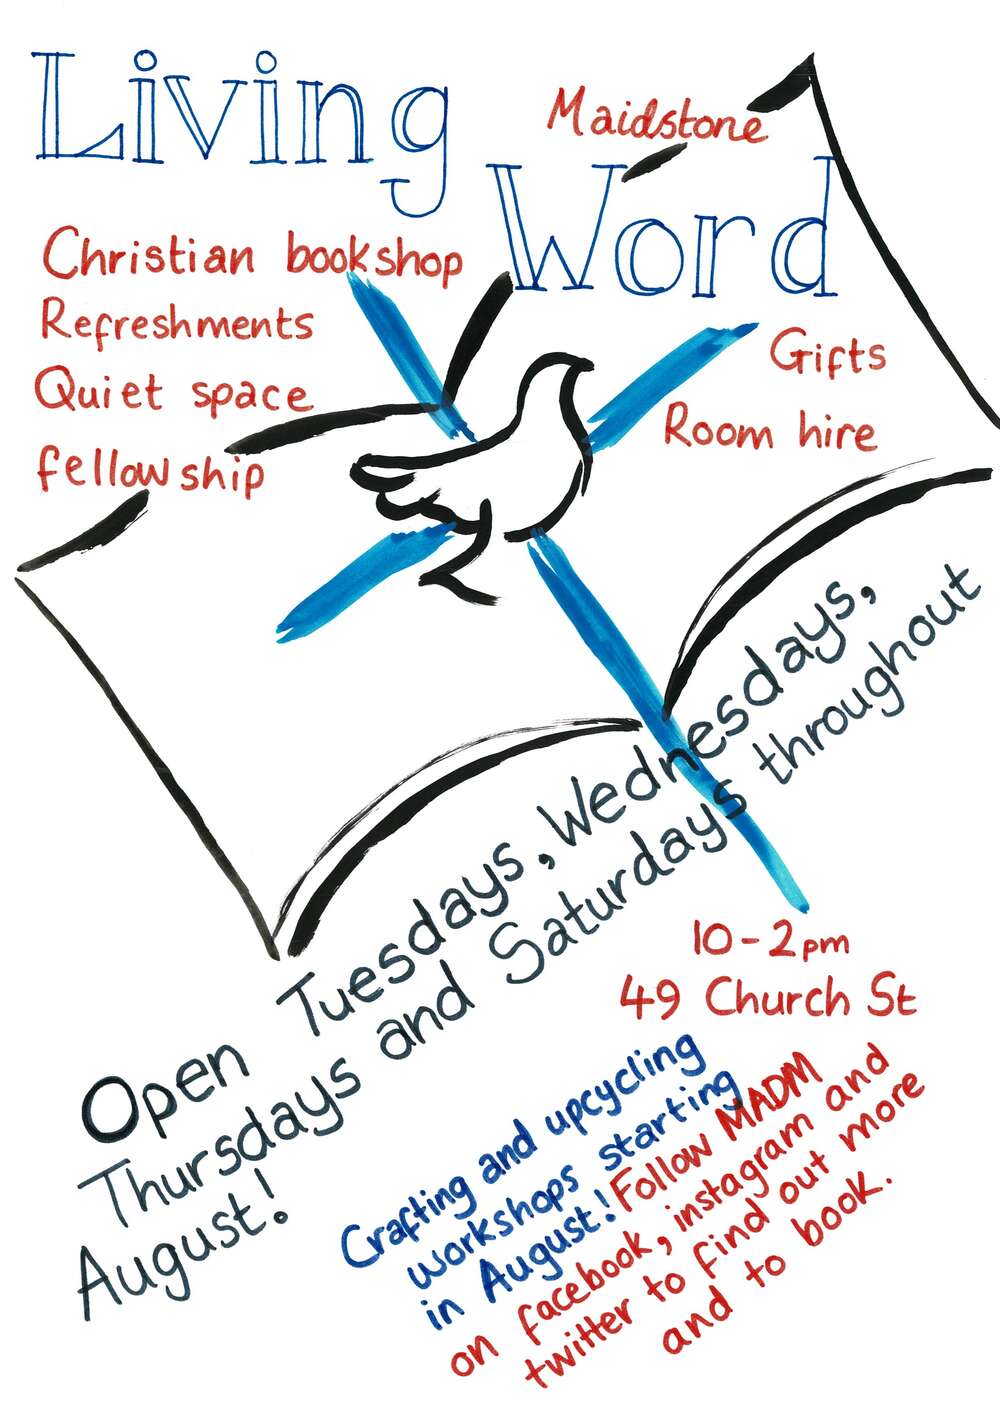 Living
Maidstone
Word
Christian bookshop
Refreshments
Quiet space
fellowship
Gifts
Room hire
Open Tuesdays, Wednesdays,
Thursdays and Saturdays throughout
August!
10-2pm
49 Church St
Crafting and upcycling
workshops starting
in August! Follow MADM
on facebook, instagram and
twitter to find out more
and to book.